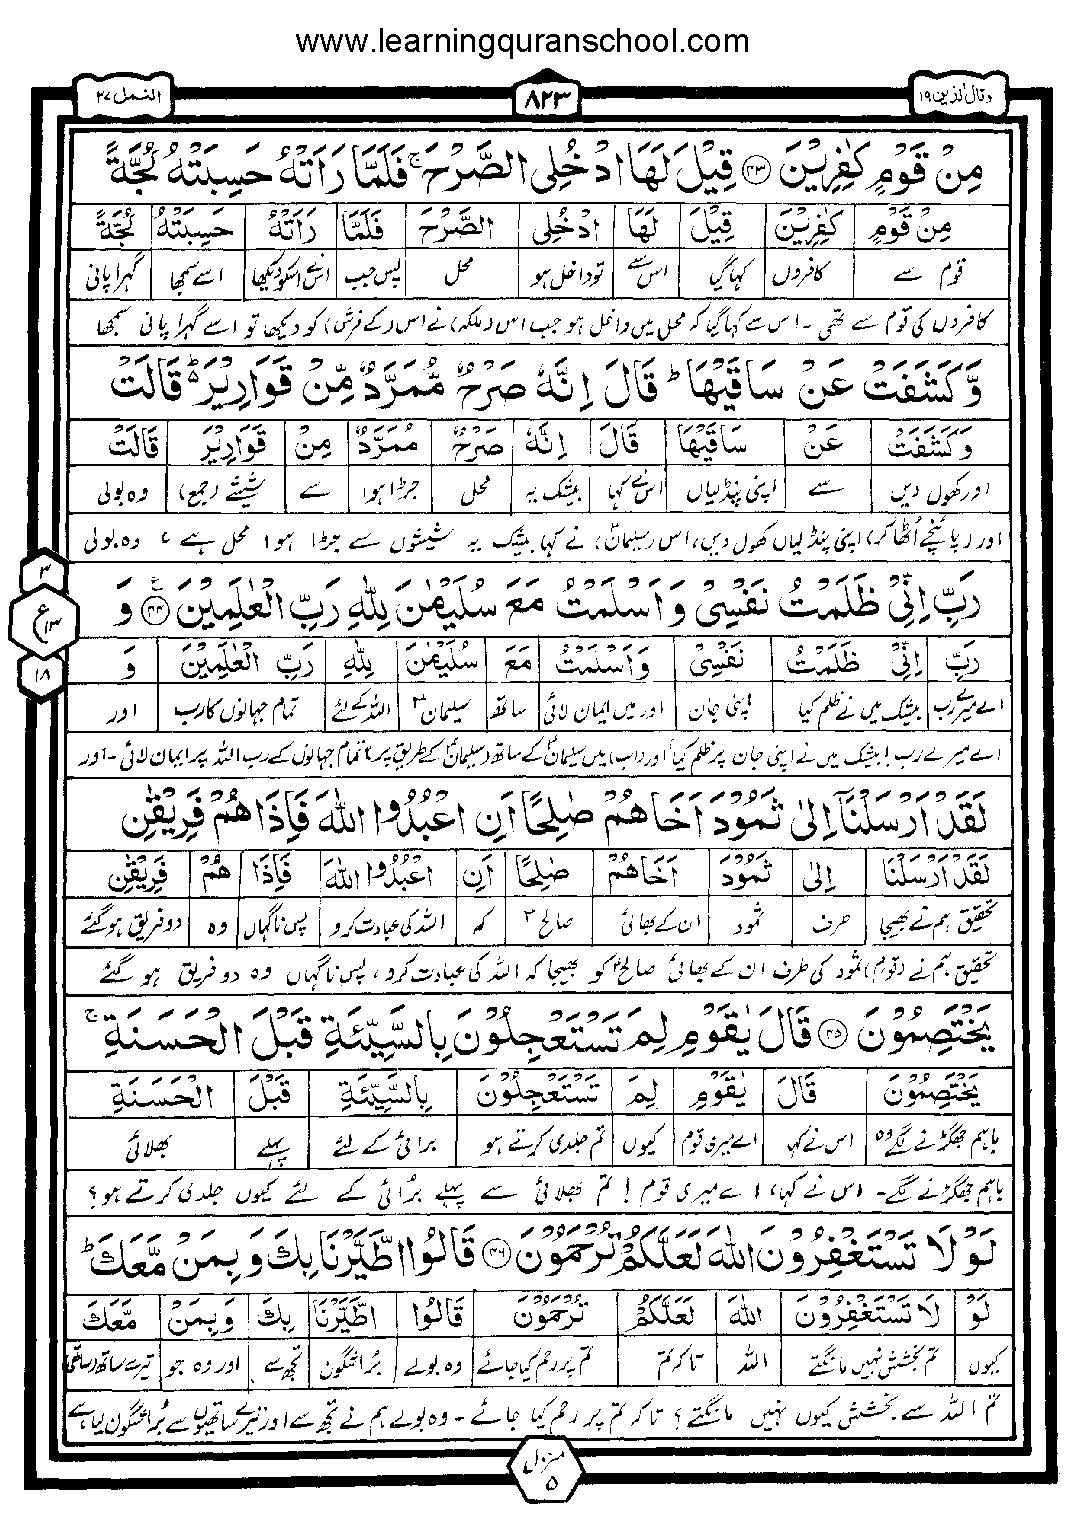 www.learningquranschool.com
وقال الذین ۱۹
۸۲۳
النمل ۲۷
مِنْ قَوْمٍ كٰفِرِیْنَ ۴۳ قِیْلَ لَهَا ادْخُلِی الصَّرْحَ ۚ فَلَمَّا رَاَتْهُ حَسِبَتْهُ لُجَّةً
مِنْ قَوْمٍ كٰفِرِیْنَ قِیْلَ لَهَا ادْخُلِی الصَّرْحَ فَلَمَّا رَاَتْهُ حَسِبَتْهُ لُجَّةً
قوم سے کافروں کہا گیا اس سے تو داخل ہو محل پس جب اس نے اسکو دیکھا اسے سمجھا گہرا پانی
کافروں کی قوم سے تھی ۔ اس سے کہا گیا کہ محل میں داخل ہو جب اس (ملکہ) نے اس (کے فرش) کو دیکھا تو اسے گہرا پانی سمجھا
وَّكَشَفَتْ عَنْ سَاقَیْهَا ؕ قَالَ اِنَّهٗ صَرْحٌ مُّمَرَّدٌ مِّنْ قَوَارِیْرَ ؕ۬ قَالَتْ
وَكَشَفَتْ عَنْ سَاقَیْهَا قَالَ اِنَّهٗ صَرْحٌ مُمَرَّدٌ مِنْ قَوَارِیْرَ قَالَتْ
اور کھول دیں سے اپنی پنڈلیاں اس نے کہا بیشک یہ محل جڑا ہوا سے شیشے (جمع) وہ بولی
اور (پائنچے اُٹھا کر) اپنی پنڈلیاں کھول دیں، اس (سلیمانؑ) نے کہا بیشک یہ شیشوں سے جڑا ہوا محل ہے ، وہ بولی
رَبِّ اِنِّیْ ظَلَمْتُ نَفْسِیْ وَ اَسْلَمْتُ مَعَ سُلَیْمٰنَ لِلّٰهِ رَبِّ الْعٰلَمِیْنَ ۴۴ ع وَ
رَبِّ اِنِّیْ ظَلَمْتُ نَفْسِیْ وَاَسْلَمْتُ مَعَ سُلَیْمٰنَ لِلّٰهِ رَبِّ الْعٰلَمِیْنَ وَ
اے میرے رب بیشک میں نے ظلم کیا اپنی جان اور میں ایمان لائی ساتھ سلیمانؑ اللہ کے لئے تمام جہانوں کا رب اور
اے میرے رب! بیشک میں نے اپنی جان پر ظلم کیا اور (اب) میں سلیمانؑ کے ساتھ (سلیمانؑ کے طریق پر) تمام جہانوں کے رب اللہ پر ایمان لائی ۔ اور
۳
ع ۱۳
۱۸
لَقَدْ اَرْسَلْنَاۤ اِلٰی ثَمُوْدَ اَخَاهُمْ صٰلِحًا اَنِ اعْبُدُوا اللّٰهَ فَاِذَا هُمْ فَرِیْقٰنِ
لَقَدْ اَرْسَلْنَا اِلٰی ثَمُوْدَ اَخَاهُمْ صٰلِحًا اَنِ اعْبُدُوا اللّٰهَ فَاِذَا هُمْ فَرِیْقٰنِ
تحقیق ہم نے بھیجا طرف ثمود ان کے بھائی صالحؑ کہ اللہ کی عبادت کرو پس ناگہاں وہ دو فریق ہو گئے
تحقیق ہم نے (قوم) ثمود کی طرف ان کے بھائی صالحؑ کو بھیجا کہ اللہ کی عبادت کرو، پس ناگہاں وہ دو فریق ہو گئے
یَخْتَصِمُوْنَ ۴۵ قَالَ یٰقَوْمِ لِمَ تَسْتَعْجِلُوْنَ بِالسَّیِّئَةِ قَبْلَ الْحَسَنَةِ ۚ
یَخْتَصِمُوْنَ قَالَ یٰقَوْمِ لِمَ تَسْتَعْجِلُوْنَ بِالسَّیِّئَةِ قَبْلَ الْحَسَنَةِ
باہم جھگڑنے لگے وہ اس نے کہا اے میری قوم کیوں تم جلدی کرتے ہو برائی کے لئے پہلے بھلائی
باہم جھگڑنے لگے۔ اس نے کہا، اے میری قوم! تم بھلائی سے پہلے برُائی کے لئے کیوں جلدی کرتے ہو؟
لَوْ لَا تَسْتَغْفِرُوْنَ اللّٰهَ لَعَلَّكُمْ تُرْحَمُوْنَ ۴۶ قَالُوا اطَّیَّرْنَا بِكَ وَ بِمَنْ مَّعَكَ ؕ
لَوْ لَا تَسْتَغْفِرُوْنَ اللّٰهَ لَعَلَّكُمْ تُرْحَمُوْنَ قَالُوا اطَّیَّرْنَا بِكَ وَبِمَنْ مَّعَكَ
کیوں تم بخشش نہیں مانگتے اللہ تاکہ تم تم پر رحم کیا جائے وہ بولے برُا شگون تجھ سے اور وہ جو تیرے ساتھ (ساتھی)
تم اللہ سے بخشش کیوں نہیں مانگتے؟ تاکہ تم پر رحم کیا جائے ۔ وہ بولے ہم نے تجھ سے اور تیرے ساتھیوں سے بُرا شگون لیا ہے
منزل ۵